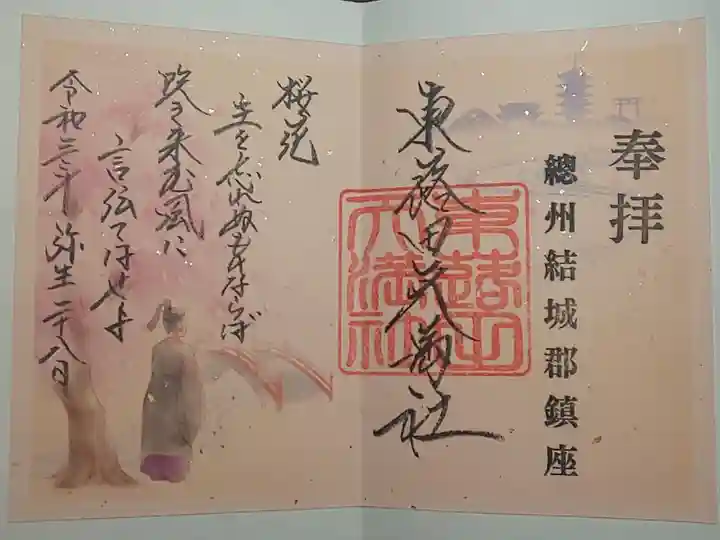 奉拝
總州結城郡鎮座
東蕗田天満社
東蕗田
天満社
桜花
主を忘れぬものならば
吹き来む風に
言伝てはせよ
令和三年 弥生二十八日